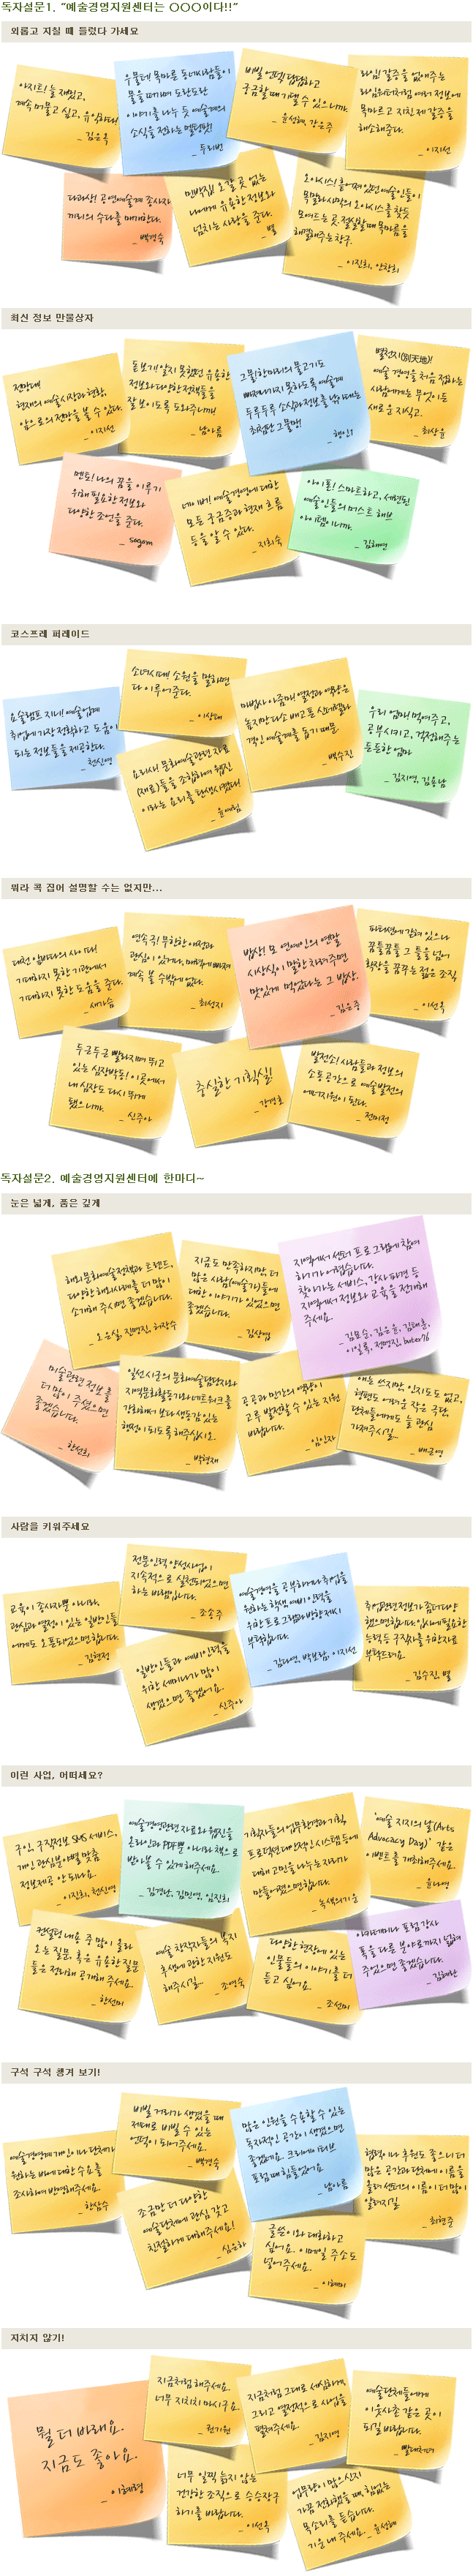 독자설문1. “예술경영지원센터는 ○○○이다!!”
외롭고 지칠 때 들렀다 가세요
아지트! 늘 재밌고,
계속 머물고 싶고, 유익하다!
_ 김은옥
우물터! 목마른 동네사람들이
물을 떠가며 도란도란
이야기를 나누듯 예술계의
소식을 전하는 멀티탭!
_ 두리번
비빌 언덕! 답답하고
궁금할 때 기댈 수 있으니까.
_ 윤성혜, 강은주
라임! 갈증을 없애주는
해소해주다.
_ 이지선
다과상! 공연예술계 종사자
끼리의 수다를 매개한다.
_ 백경숙
민박집! 오갈 곳 없는
나에게 유용한 정보와
넘치는 사랑을 준다.
_ 별
오아시스! 흩어져 있던 예술인들이
목말라 사막의 오아시스를 찾듯
모여드는 곳. 절실할 때 목마름을
해결해주는 창구.
_ 이진희, 안창희
최신 정보 만물상자
전망대
현재의 예술시장과 현황,
앞으로의 전망을 볼 수 있다.
_ 이지선
돋보기! 알지 못했던 유용한
정보와 다양한 정책들을
잘 보이도록 도와주니까!
_ 남아름
그물! 한마리의 물고기도
빠져나가지 못하도록 예술계
두루두루 소식과 정보를 낚아내는
최첨단 그물망!
_ 행인1
별천지(別天地)!
예술 경영을 처음 접하는
사람에게는 무엇이든
새로운 지식고.
_ 최상윤
멘토! 나의 꿈을 이루기
위해 필요한 정보와
다양한 조언을 준다.
_ sogom
네이버! 예술경영에 대한
모든 궁금증과 현재 흐름
등을 알 수 있다.
_ 지희숙
아이폰! 스마트하고, 세련된
예술인들의 머스트 해브
아이템이니까.
_ 김해연
코스프레 퍼레이드
요술램프 지니! 예술업계
취업에 가장 정확하고 도움이
되는 정보들을 제공한다.
_ 천신영
소녀시대! 소원을 말하면
다 이루어준다.
_ 이상대
요리사! 문화예술관련 자료
(재료)들을 조합하여 웹진
이라는 요리를 탄생시켰다!
_ 윤예림
마법사 아줌마! 열정과 역량은
높지만 다소 배고픈 신데렐라
격인 예술계를 돕기 때문.
_ 백수진
우리 엄마! 먹여주고,
공부시키고, 걱정해주는
든든한 엄마
_ 김지영, 김용남
뭐라 콕 집어 설명할 수는 없지만...
대전 엄마다의 사이다!
기대하지 못한 기관에서
기대하지 못한 도움을 준다.
_ 새가슴
연속극! 무한한 애정과
관심이 있거나, 매력에 빠져
계속 볼 수밖에 없다.
_ 최선지
밥상! 모 연예인의 연말
시상식이 말한 차려주면
맛있게 먹었다는 그 밥상.
_ 김은중
파티션에 갇혀 있으나
꿈틀꿈틀 그 틀을 넘어
확장을 꿈꾸는 젊은 조직
_ 이선옥
두근두근 빨라지며 뛰고
있는 심장박동! 이곳에서
내 심장도 다시 뛰게
됐으니까.
_ 신주아
충실한 기획실!
_ 강경호
발전소! 사람들과 정보의
소통공간으로 예술발전의
에너지원이 된다.
_ 전미정
독자설문2. 예술경영지원센터에 한마디~
눈은 넓게, 품은 깊게
해외 문화예술정책과 트렌드,
다양한 해외사례를 더 많이
소개해 주시면 좋겠습니다.
_ 오은실, 진명진, 허장수
지금도 만족하지만, 더
많은 사람(예술가)들에
대한 이야기가 있었으면
좋겠습니다.
_ 김상엽
지역에서 센터 프로그램에 참여
하기가 어렵습니다.
찾아가는 서비스, 강사파견 등
지역에서 정보와 교육을 전개해
주세요.
미술관련 정보를
더 많이 주셨으면
좋겠습니다.
_ 한선희
일선 시군의 문화예술담당자와
지역문화활동가와 네트워크를
강화해서 보다 생동감 있는
행정이 되도록 해주십시오.
_ 박형재
공공과 민간의 역량이
고루 발전할 수 있는 지원
바랍니다.
_ 임인자
애는 쓰지만, 인지도도 없고,
형편도 어려운 작은 극단,
단체들에게도 늘 관심
가져주시길...
_ 배근영
사람을 키워주세요
교육이 종사자뿐 아니라,
관심과 열정이 있는 일반인들
에게도 오픈되었으면 합니다.
_ 김현정
전문인력 양성사업이
지속적으로 실현되었으면
하는 바람입니다.
_ 조승주
일반인들과 예비인력을
위한 세미나가 많이
생겼으면 좋겠어요.
_ 신주아
예술경영을 공부하거나 취업을
원하는 학생, 예비인력을
위한 프로그램과 방향 제시
부탁합니다.
_ 김다영, 박보람, 이지선
취업관련 정보가 좀더 다양
했으면 합니다. 입사에 필요한
능력 등 구직자를 위한 자료
부탁드려요.
_ 김수진, 별
이런 사업, 어떠세요?
구인, 구직정보 SMS 서비스,
개인 관심분야별 맞춤
정보제공 안 되나요.
_ 이진희, 천신영
예술경영관련 자료와 웹진을
온라인과 PDF뿐 아니라 책으로
받아볼 수 있게 해주세요.
_ 김경난, 김민영, 임진희
기획자들의 업무환경과 기획
프로덕션 대안적인 시스템 등에
대해 고민을 나누는 자리가
만들어졌으면 합니다.
_ 녹색의기운
‘예술 지지의 날(Arts
Advocacy Day)’ 같은
이벤트를 개최해주세요.
_ 윤나영
컨설팅 내용 중 많이 올라
오는 질문, 혹은 유용한 질문
들은 정리해 공개해 주세요.
_ 한선미
예술 창작자들의 복지
후생에 관한 지원도
해주시길...
_ 조영숙
다양한 현장에 있는
인물들의 이야기를 더
듣고 싶어요.
_ 조선미
아카데미나 토힘 강사
폭을 다른 분야로까지 넓혀
주었으면 좋겠습니다.
_ 김해란
구석 구석 챙겨 보기!
예술경영계 개인이나 단체가
원하는 바에 대한 수요를
조사하여 반영해주세요.
_ 함삼수
비빌 거리가 생겼을 때
제대로 비빌 수 있는
언덕이 되어주세요.
_ 백경숙
조금만 더 다양한
예술단체에 관심 갖고
친절하게 대해주세요!
_ 심은하
많은 인원을 수용할 수 있는
독자적인 공간이 생겼으면
좋겠어요. 크리에이티브
포럼 때 힘들었어요.
_ 남아름
글쓴이와 대화하고
싶어요. 이메일 주소도
넣어주세요.
_ 이혜미
협력이나 후원도 좋으니 더
많은 공간과 단체에 이름을
올려 센터의 이름이 더 많이
알려지길
_ 최현준
지치지 않기!
뭘 더 바래요.
지금도 좋아요.
_ 이혜령
지금처럼 해주세요.
너무 지치지 마시구요.
_ 전기원
지금처럼 그대로 세심하게,
그리고 열정적으로 사업을
펼쳐주세요.
_ 김지영
예술단체들에게
이웃사촌 같은 곳이
되길 바랍니다.
_ 빨대처녀
너무 일찍 늙지 않는
건강한 조직으로 승승장구
하기를 바랍니다.
_ 이선옥
업무량이 많으신지
가끔 전화했을 때, 힘없는
목소리를 듣습니다.
기운 내 주세요. _ 윤성혜